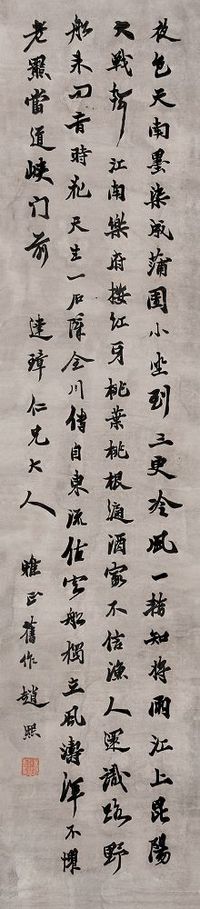 夜色天南墨染成蒲團小坐到三更冷風一稍知將雨江上昆陽
大戰聲 江南樂府按紅牙桃葉桃根適酒家不信漁人渠識路野
船來問者時花 天生一石障全川傳自東流估客船獨立風濤渾不懼
老羆當道峽門前 達璋仁兄大人
雅正 舊作 趙熙